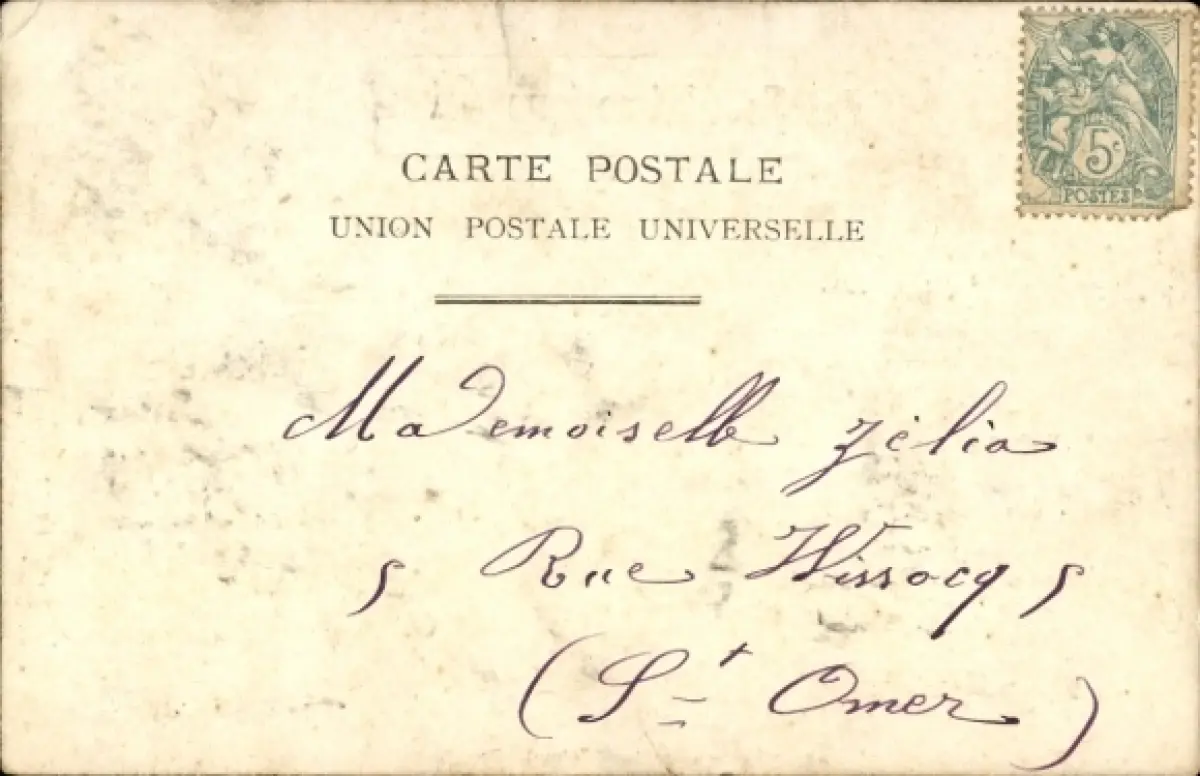 CARTE POSTALE
UNION POSTALE UNIVERSELLE
5c
POSTES
Mademoiselle Zélia
5 Rue Wissocq 5
(St Omer)